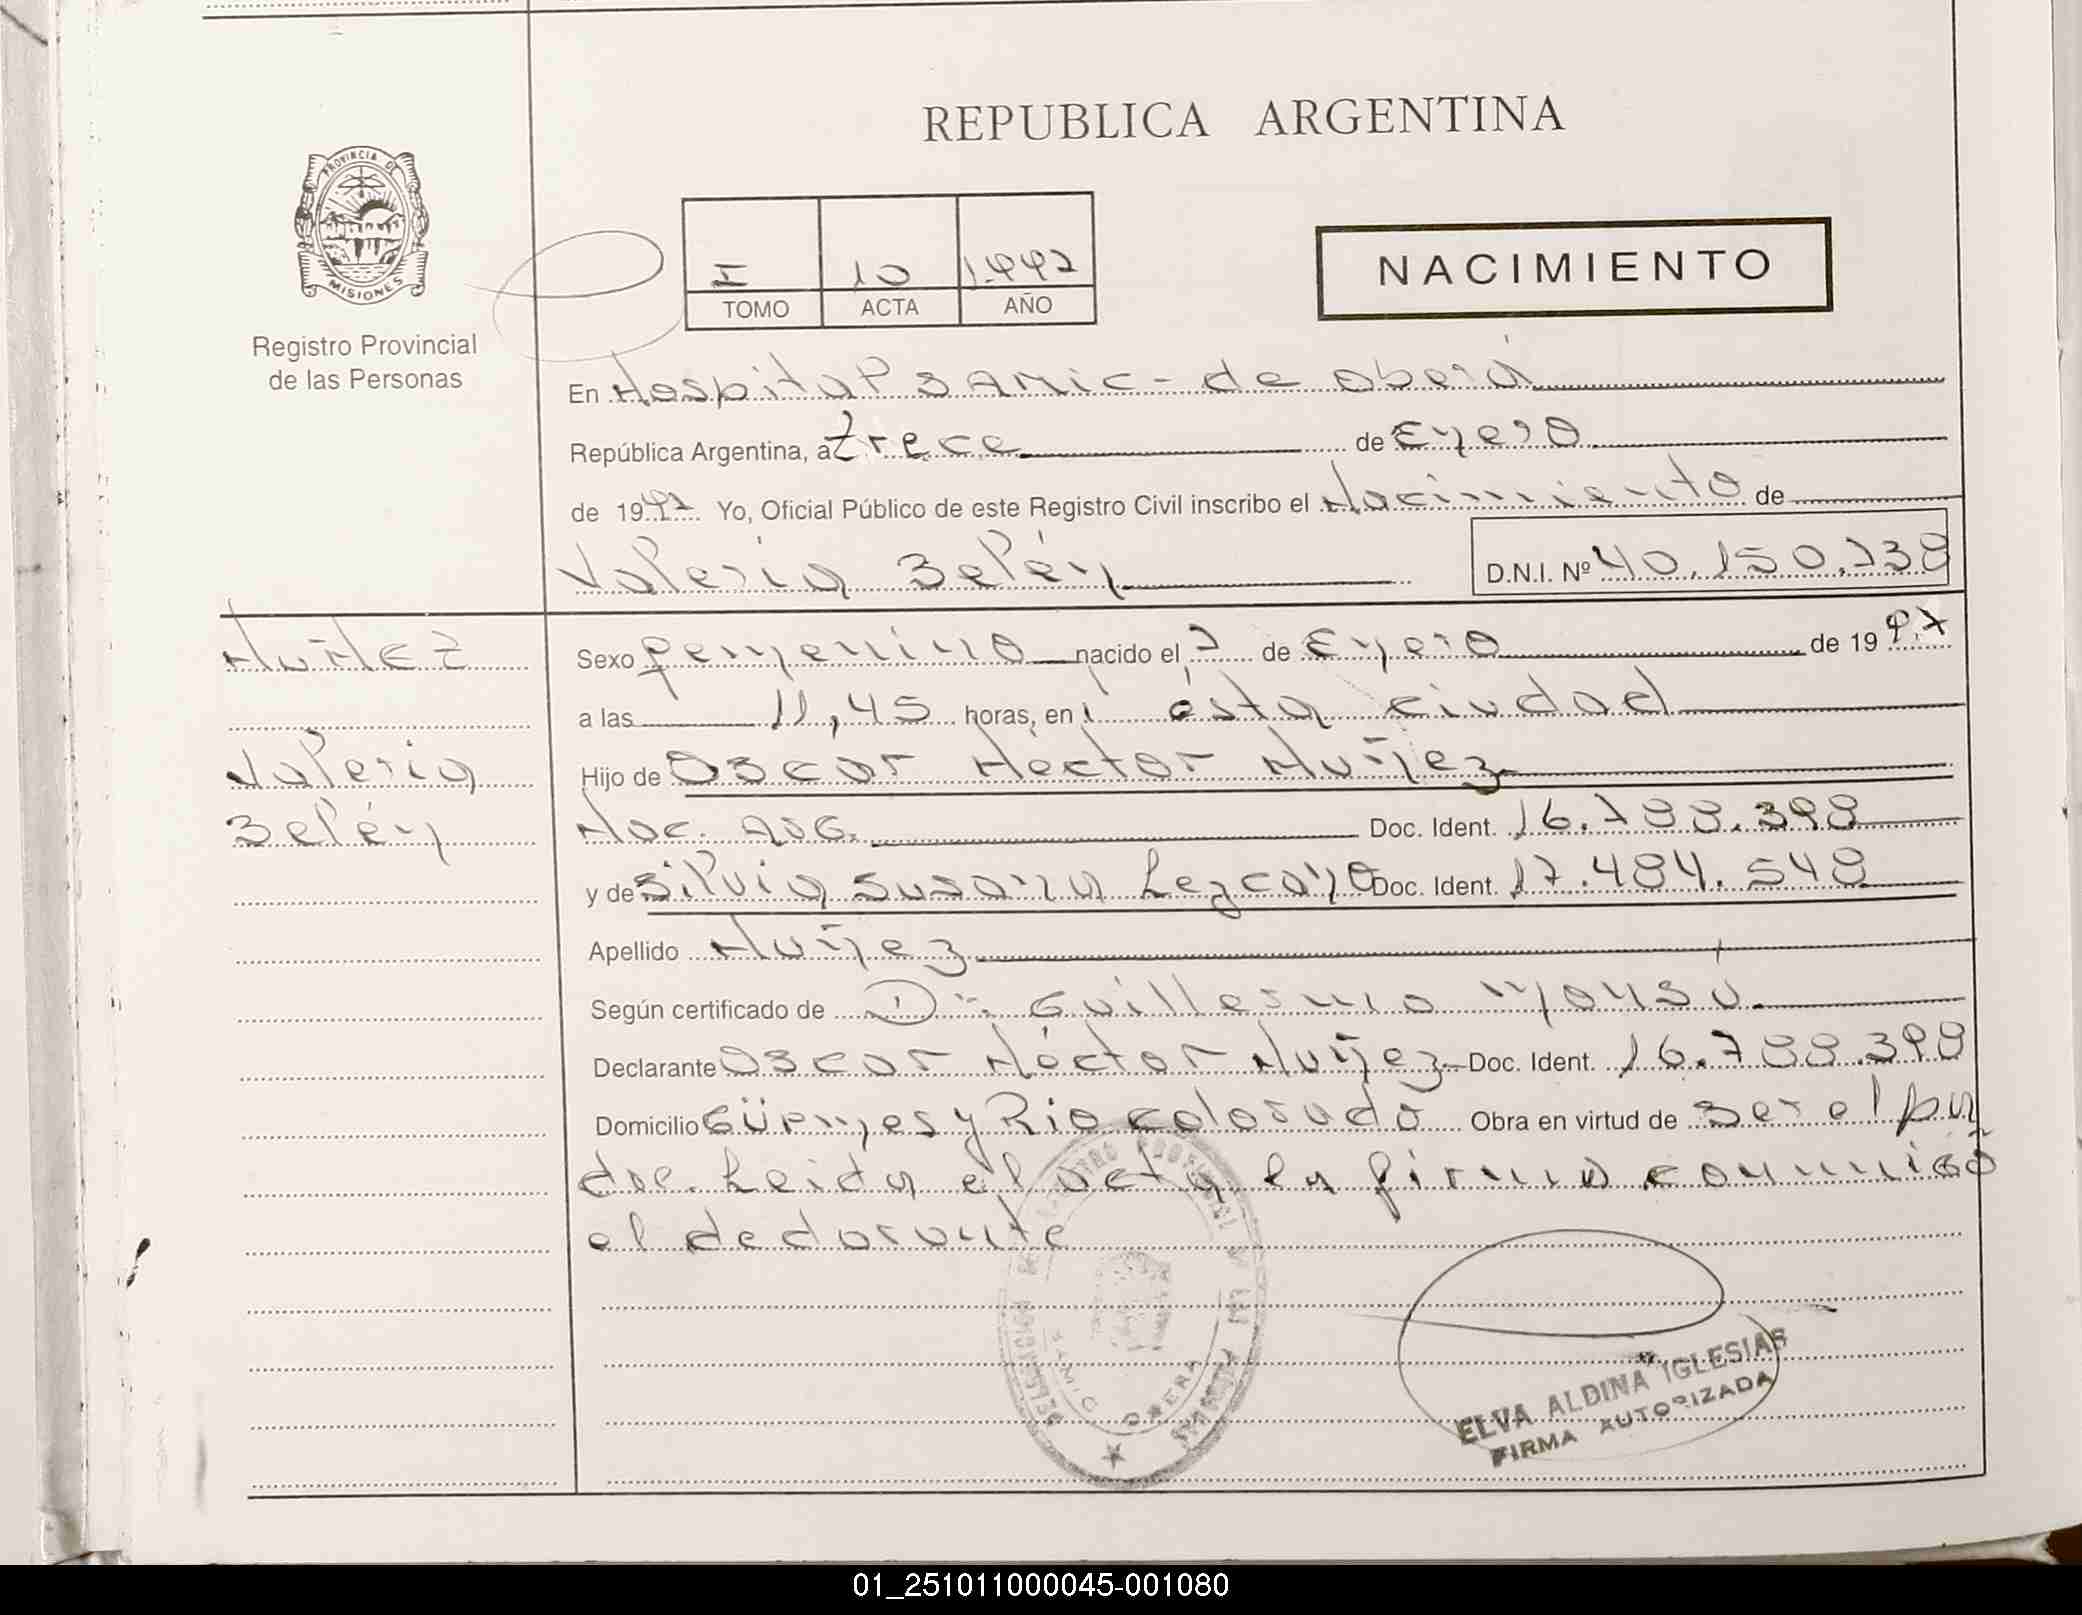 REPUBLICA ARGENTINA
PROVINCIA DE
MISIONES
Registro Provincial
de las Personas
I 10 1.997
TOMO ACTA AÑO
NACIMIENTO
En Hospital SAMic - de oberá
República Argentina, a trece de Enero
de 1997 Yo, Oficial Público de este Registro Civil inscribo el Nacimiento de
Valeria Belén D.N.I. Nº 40.150.738
Nuñez
Valeria
Belén
Sexo femenino nacido el 7 de Enero de 1997
a las 11,45 horas, en ésta ciudad
Hijo de Oscar Héctor Nuñez
Nac. arg. Doc. Ident. 16.788.398
y de Silvia Susana Lezcano Doc. Ident. 17.484.548
Apellido Nuñez
Según certificado de Dr. Guillermo
Declarante Oscar Héctor Nuñez Doc. Ident. 16.788.398
Domicilio Güemes y Rio colorado Obra en virtud de Ser el pa
dre. Leida el acta la firma conmigo
el declarante
SAMIC OBERA
ELVA ALDINA IGLESIAS
FIRMA AUTORIZADA
01_251011000045-001080